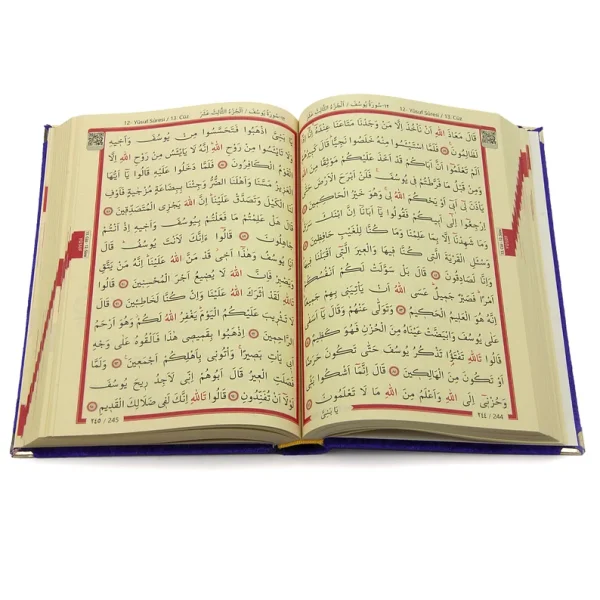 ١٢-سُورَةُ يُوسُفَ / اَلْجُزْءُ الثَّالِثَ عَشَرَ 12- Yûsuf Sûresi / 13. Cüz
قَالَ مَعَاذَ اللّٰهِ اَنْ نَأْخُذَ اِلَّا مَنْ وَجَدْنَا مَتَاعَنَا عِنْدَهُٓ اِنَّٓا
لَظَالِمُونَ ۟ فَلَمَّا اسْتَيْـَٔسُوا مِنْهُ خَلَصُوا نَجِيًّا قَالَ كَبِيرُهُمْ
اَلَمْ تَعْلَمُٓوا اَنَّ اَبَاكُمْ قَدْ اَخَذَ عَلَيْكُمْ مَوْثِقًا مِنَ اللّٰهِ
وَمِنْ قَبْلُ مَا فَرَّطْتُمْ فِي يُوسُفَ فَلَنْ اَبْرَحَ الْاَرْضَ حَتّٰى
يَأْذَنَ لِٓي اَبِٓي اَوْ يَحْكُمَ اللّٰهُ لِي وَهُوَ خَيْرُ الْحَاكِمِينَ
اِرْجِعُٓوا اِلٰٓى اَبِيكُمْ فَقُولُوا يَٓا اَبَانَٓا اِنَّ ابْنَكَ سَرَقَ
وَمَا شَهِدْنَٓا اِلَّا بِمَا عَلِمْنَا وَمَا كُنَّا لِلْغَيْبِ حَافِظِينَ
وَسْـَٔلِ الْقَرْيَةَ الَّتِي كُنَّا فِيهَا وَالْعِيرَ الَّتِٓي اَقْبَلْنَا فِيهَا
وَاِنَّا لَصَادِقُونَ قَالَ بَلْ سَوَّلَتْ لَكُمْ اَنْفُسُكُمْ
اَمْرًا فَصَبْرٌ جَمِيلٌ عَسَى اللّٰهُ اَنْ يَأْتِيَنِي بِهِمْ جَمِيعًا
اِنَّهُ هُوَ الْعَلِيمُ الْحَكِيمُ وَتَوَلّٰى عَنْهُمْ وَقَالَ يَٓا اَسَفٰى
عَلٰى يُوسُفَ وَابْيَضَّتْ عَيْنَاهُ مِنَ الْحُزْنِ فَهُوَ كَظِيمٌ
قَالُوا تَاللّٰهِ تَفْتَؤُ۬ا تَذْكُرُ يُوسُفَ حَتّٰى تَكُونَ حَرَضًا
اَوْ تَكُونَ مِنَ الْهَالِكِينَ قَالَ اِنَّمَٓا اَشْكُوا بَثِّي
وَحُزْنِٓي اِلَى اللّٰهِ وَاَعْلَمُ مِنَ اللّٰهِ مَا لَا تَعْلَمُونَ
يَا بَنِيَّ
٢٤٤ / 244
12- Yûsuf Sûresi / 13. Cüz ١٢-سُورَةُ يُوسُفَ / اَلْجُزْءُ الثَّالِثَ عَشَرَ
يَا بَنِيَّ اذْهَبُوا فَتَحَسَّسُوا مِنْ يُوسُفَ وَاَخِيهِ
وَلَا تَايْـَٔسُوا مِنْ رَوْحِ اللّٰهِ اِنَّهُ لَا يَايْـَٔسُ مِنْ رَوْحِ اللّٰهِ اِلَّا
الْقَوْمُ الْكَافِرُونَ فَلَمَّا دَخَلُوا عَلَيْهِ قَالُوا يَٓا اَيُّهَا
الْعَزِيزُ مَسَّنَا وَاَهْلَنَا الضُّرُّ وَجِئْنَا بِبِضَاعَةٍ مُزْجٰيةٍ فَاَوْفِ
لَنَا الْكَيْلَ وَتَصَدَّقْ عَلَيْنَا اِنَّ اللّٰهَ يَجْزِي الْمُتَصَدِّقِينَ
قَالَ هَلْ عَلِمْتُمْ مَا فَعَلْتُمْ بِيُوسُفَ وَاَخِيهِ اِذْ اَنْتُمْ
جَاهِلُونَ قَالُٓوا ءَاِنَّكَ لَاَنْتَ يُوسُفُ قَالَ
اَنَا يُوسُفُ وَهٰذَٓا اَخِي قَدْ مَنَّ اللّٰهُ عَلَيْنَا اِنَّهُ مَنْ يَتَّقِ
وَيَصْبِرْ فَاِنَّ اللّٰهَ لَا يُضِيعُ اَجْرَ الْمُحْسِنِينَ قَالُوا
تَاللّٰهِ لَقَدْ اٰثَرَكَ اللّٰهُ عَلَيْنَا وَاِنْ كُنَّا لَخَاطِـِٔينَ قَالَ
لَا تَثْرِيبَ عَلَيْكُمُ الْيَوْمَ يَغْفِرُ اللّٰهُ لَكُمْ وَهُوَ اَرْحَمُ
الرَّاحِمِينَ اِذْهَبُوا بِقَمِيصِي هٰذَا فَاَلْقُوهُ عَلٰى وَجْهِ
اَبِي يَأْتِ بَصِيرًا وَأْتُونِي بِاَهْلِكُمْ اَجْمَعِينَ وَلَمَّا
فَصَلَتِ الْعِيرُ قَالَ اَبُوهُمْ اِنِّي لَاَجِدُ رِيحَ يُوسُفَ
لَوْلَٓا اَنْ تُفَنِّدُونِ قَالُوا تَاللّٰهِ اِنَّكَ لَفِي ضَلَالِكَ الْقَدِيمِ
٢٤٥ / 245